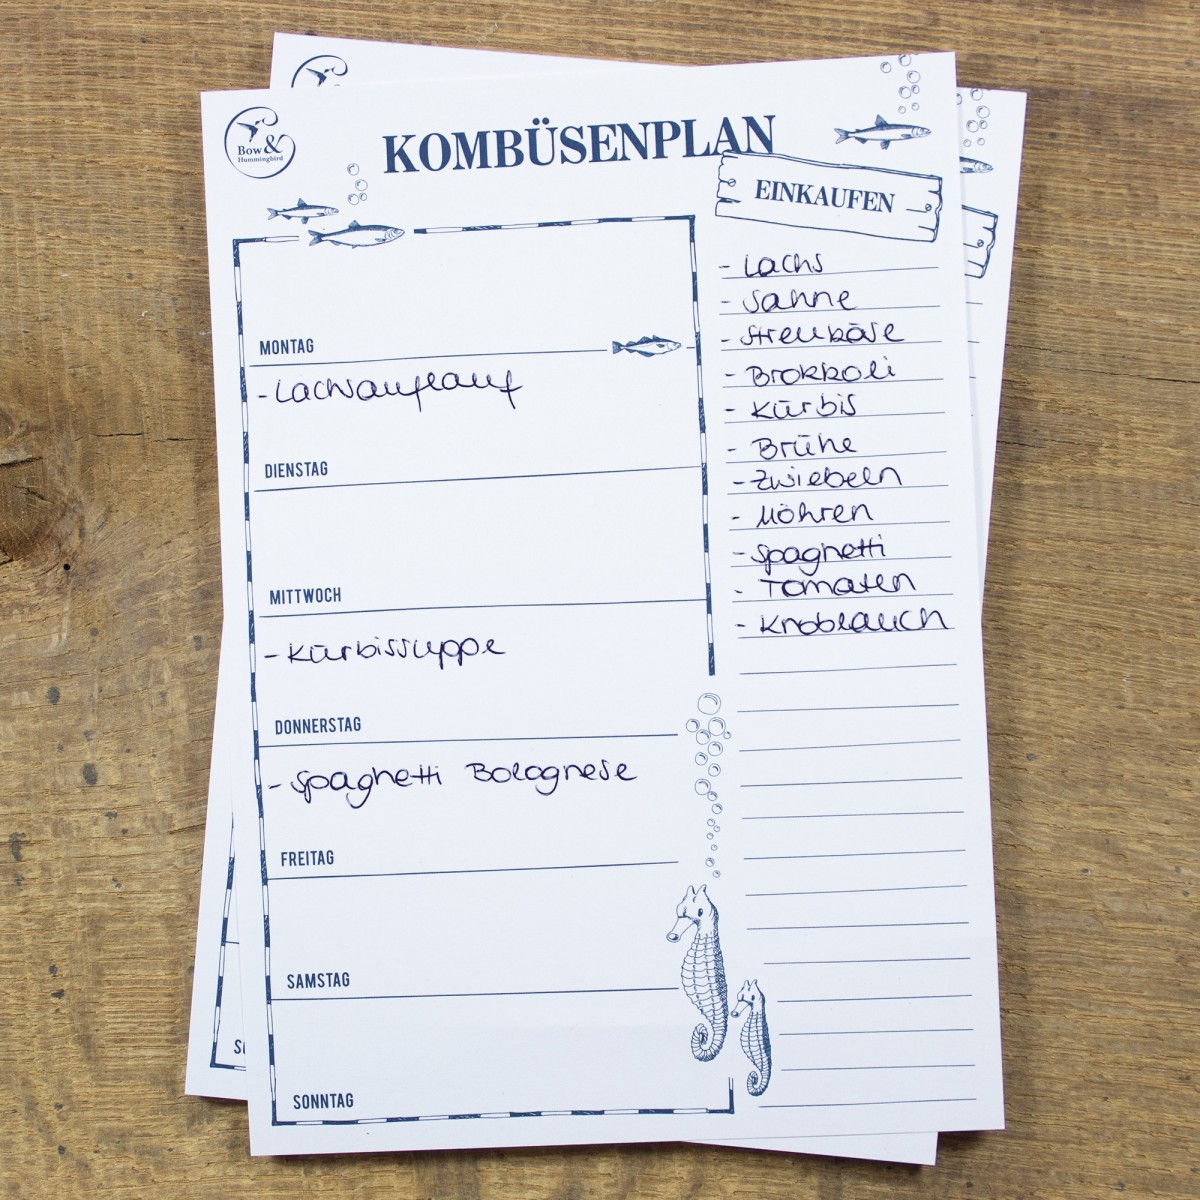 Bow &
Hummingbird
KOMBÜSENPLAN
EINKAUFEN
MONTAG
- Lachsauflauf
DIENSTAG
MITTWOCH
- Kürbissuppe
DONNERSTAG
- Spaghetti Bolognese
FREITAG
SAMSTAG
SONNTAG
- Lachs
- Sahne
- Streukäse
- Brokkoli
- Kürbis
- Brühe
- Zwiebeln
- Möhren
- Spaghetti
- Tomaten
- Knoblauch